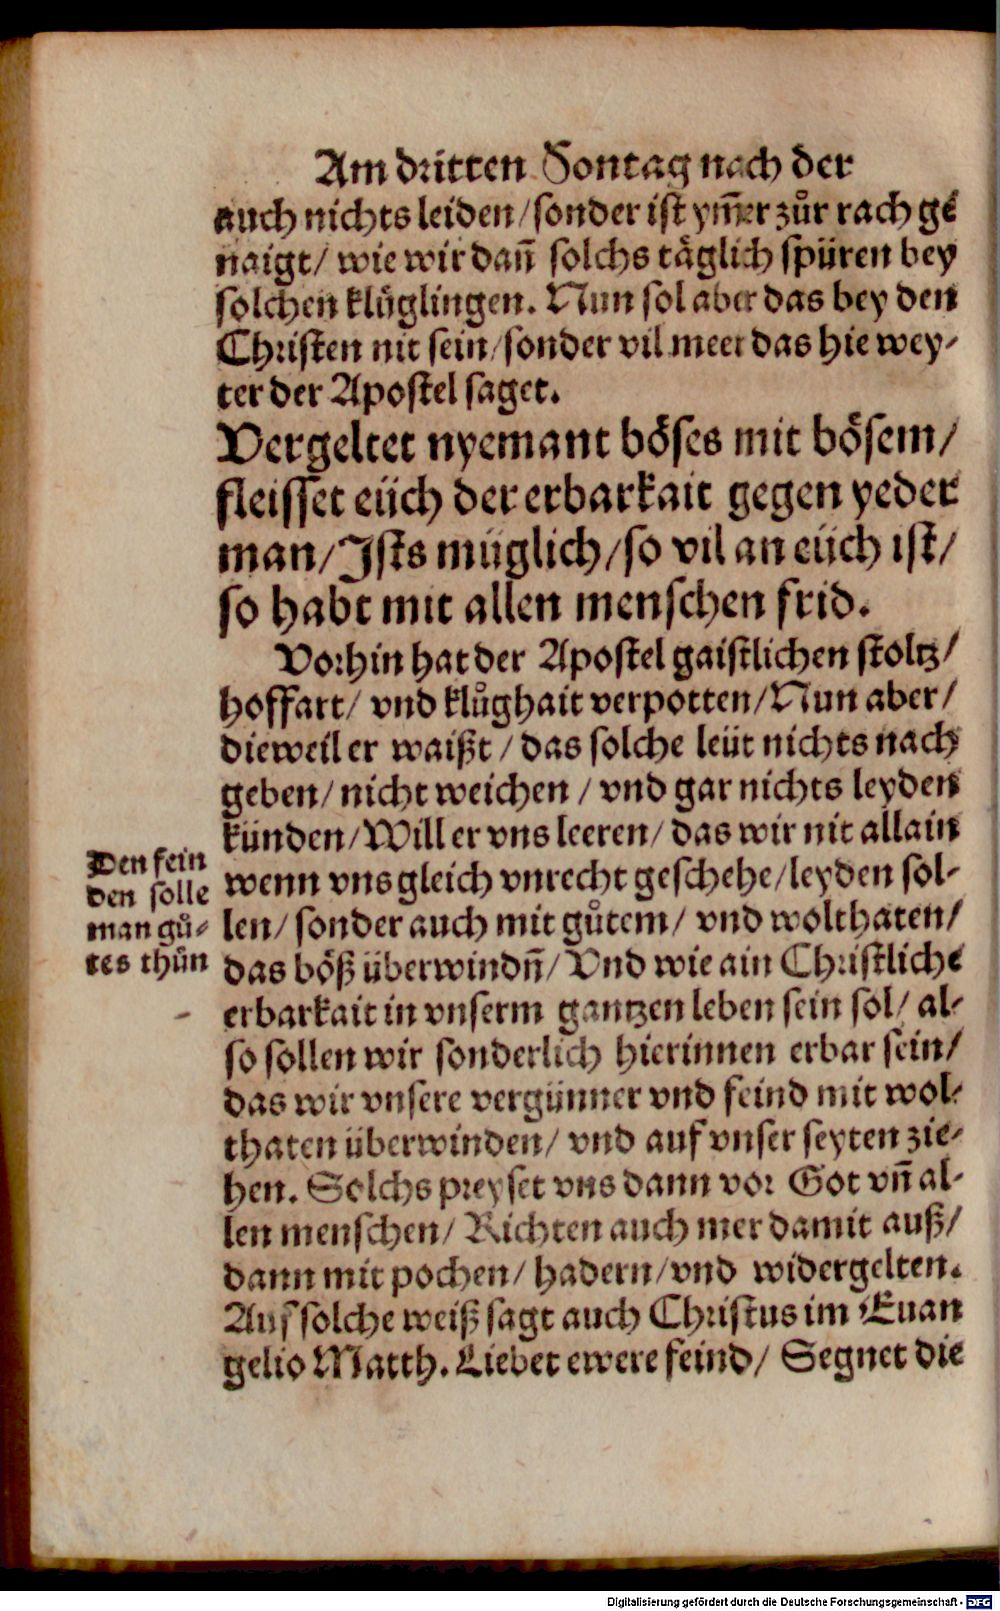 Am dritten Sontag nach der
auch nichts leiden/ sonder ist ym̃er zůr rach ge
naigt/ wie wir dañ solchs täglich spüren bey
solchen klůglingen. Nun sol aber das bey den
Christen nit sein/ sonder vil meer das hie wey-
ter der Apostel saget.
Vergeltet nyemant böses mit bösem/
fleisset eüch der erbarkait gegen yeder
man/ Ists müglich/ so vil an eüch ist/
so habt mit allen menschen frid.
Vorhin hat der Apostel gaistlichen stoltz/
hoffart/ vnd klůghait verpotten/ Nun aber/
dieweil er waißt/ das solche leüt nichts nach
geben/ nicht weichen/ vnd gar nichts leyden
künden/ Will er vns leeren/ das wir nit allain
wenn vns gleich vnrecht geschehe/ leyden sol-
len/ sonder auch mit gůtem/ vnd wolthaten/
das böß überwindñ/ Vnd wie ain Christliche
erbarkait in vnserm gantzen leben sein sol/ al-
so sollen wir sonderlich hierinnen erbar sein/
das wir vnsere vergünner vnd feind mit wol-
thaten überwinden/ vnd auf vnser seyten zie-
hen. Solchs preyset vns dann vor Got vñ al-
len menschen/ Richten auch mer damit auß/
dann mit pochen/ hadern/ vnd widergelten.
Auf solche weiß sagt auch Christus im Euan
gelio Matth. Liebet ewere feind/ Segnet die
Den fein
den solle
man gů-
tes thůn
Digitalisierung gefördert durch die Deutsche Forschungsgemeinschaft - DFG